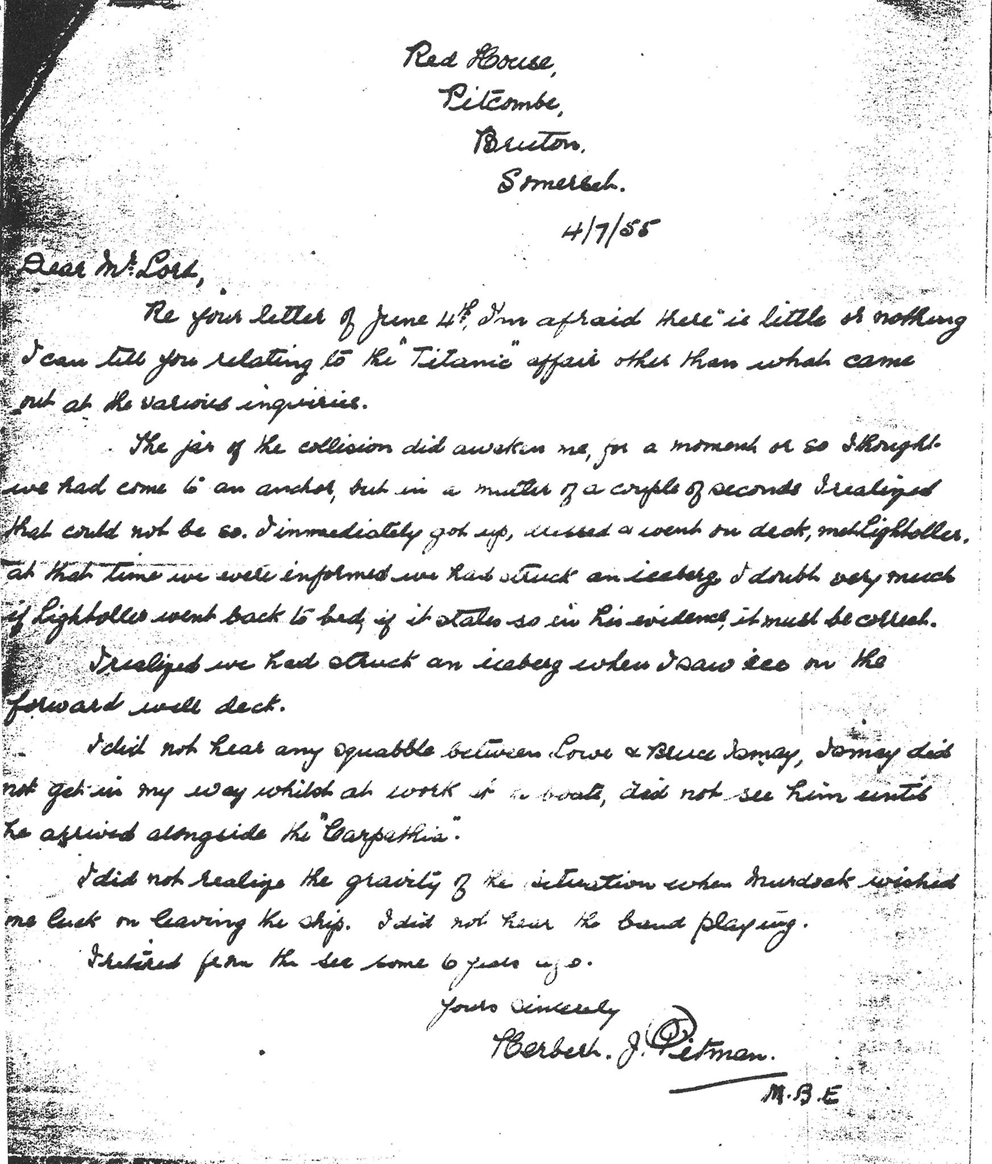 Red House,
Pitcombe,
Bruton,
Somerset.
4/7/55
Dear Mr. Lord,
Re your letter of June 4th, I'm afraid there is little or nothing
I can tell you relating to the "Titanic" affair other than what came
out at the various inquiries.
The jar of the collision did awaken me, for a moment or so I thought
we had come to an anchor, but in a matter of a couple of seconds I realized
that could not be so. I immediately got up, went on deck, met Lightoller,
at that time we were informed we had struck an iceberg, I doubt very much
if Lightoller went back to bed, if it states so in his evidence, it must be correct.
I realized we had struck an iceberg when I saw ice on the
forward well deck.
I did not hear any squabble between Lowe & Bruce Ismay, Ismay did
not get in my way whilst at work boats, did not see him until
he arrived alongside the "Carpathia".
I did not realize the gravity of the situation when Murdock wished
me luck on leaving the ship. I did not hear the band playing.
I retired from the sea some 6 years ago.
Yours sincerely
Herbert. J. Pitman.
M.B.E